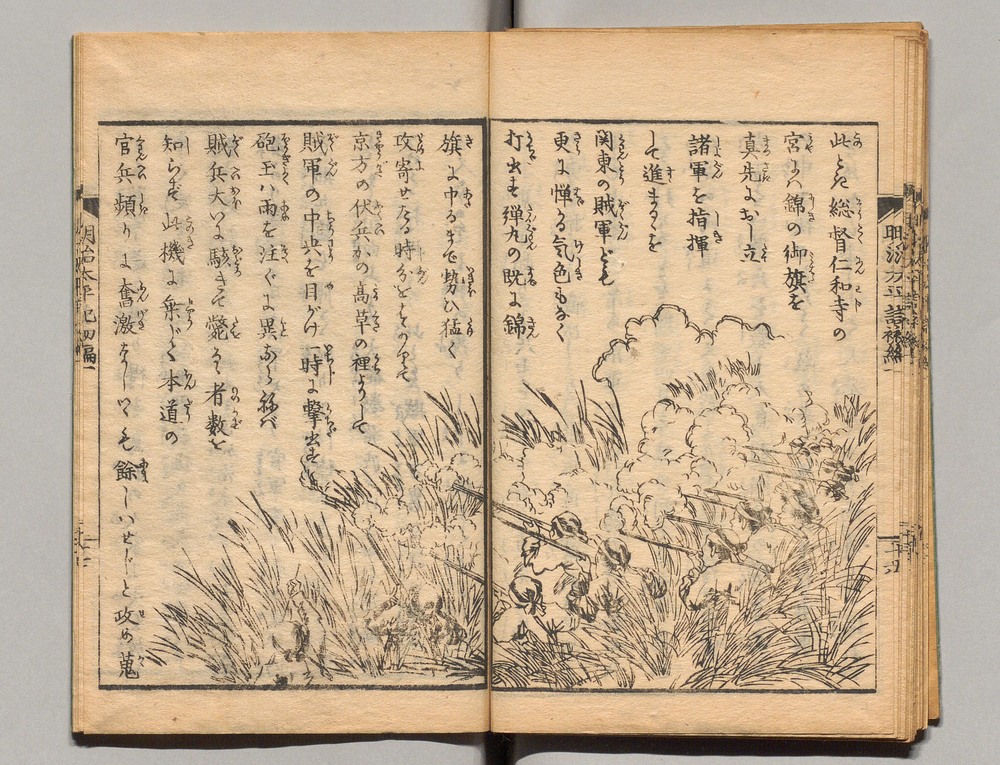 此とき総督仁和寺の
宮よハ錦の御旗を
真先におし立
諸軍を指揮
して進まるゝを
関東の賊軍ども
更に憚る気色もなく
打出す弾丸の既に錦
旗に中るまで勢ひ猛く
攻寄せたる時
京方の伏兵かの高草の裡よりして
賊軍の中央を目がけ一時に撃出す
砲玉ハ雨を注ぐに異ならねバ
賊兵大いに駭きて斃るゝ者数を
知らず此機に乗じて本道の
官兵頻りに奮激なし
餘しハせじと攻
明治太平記四編一